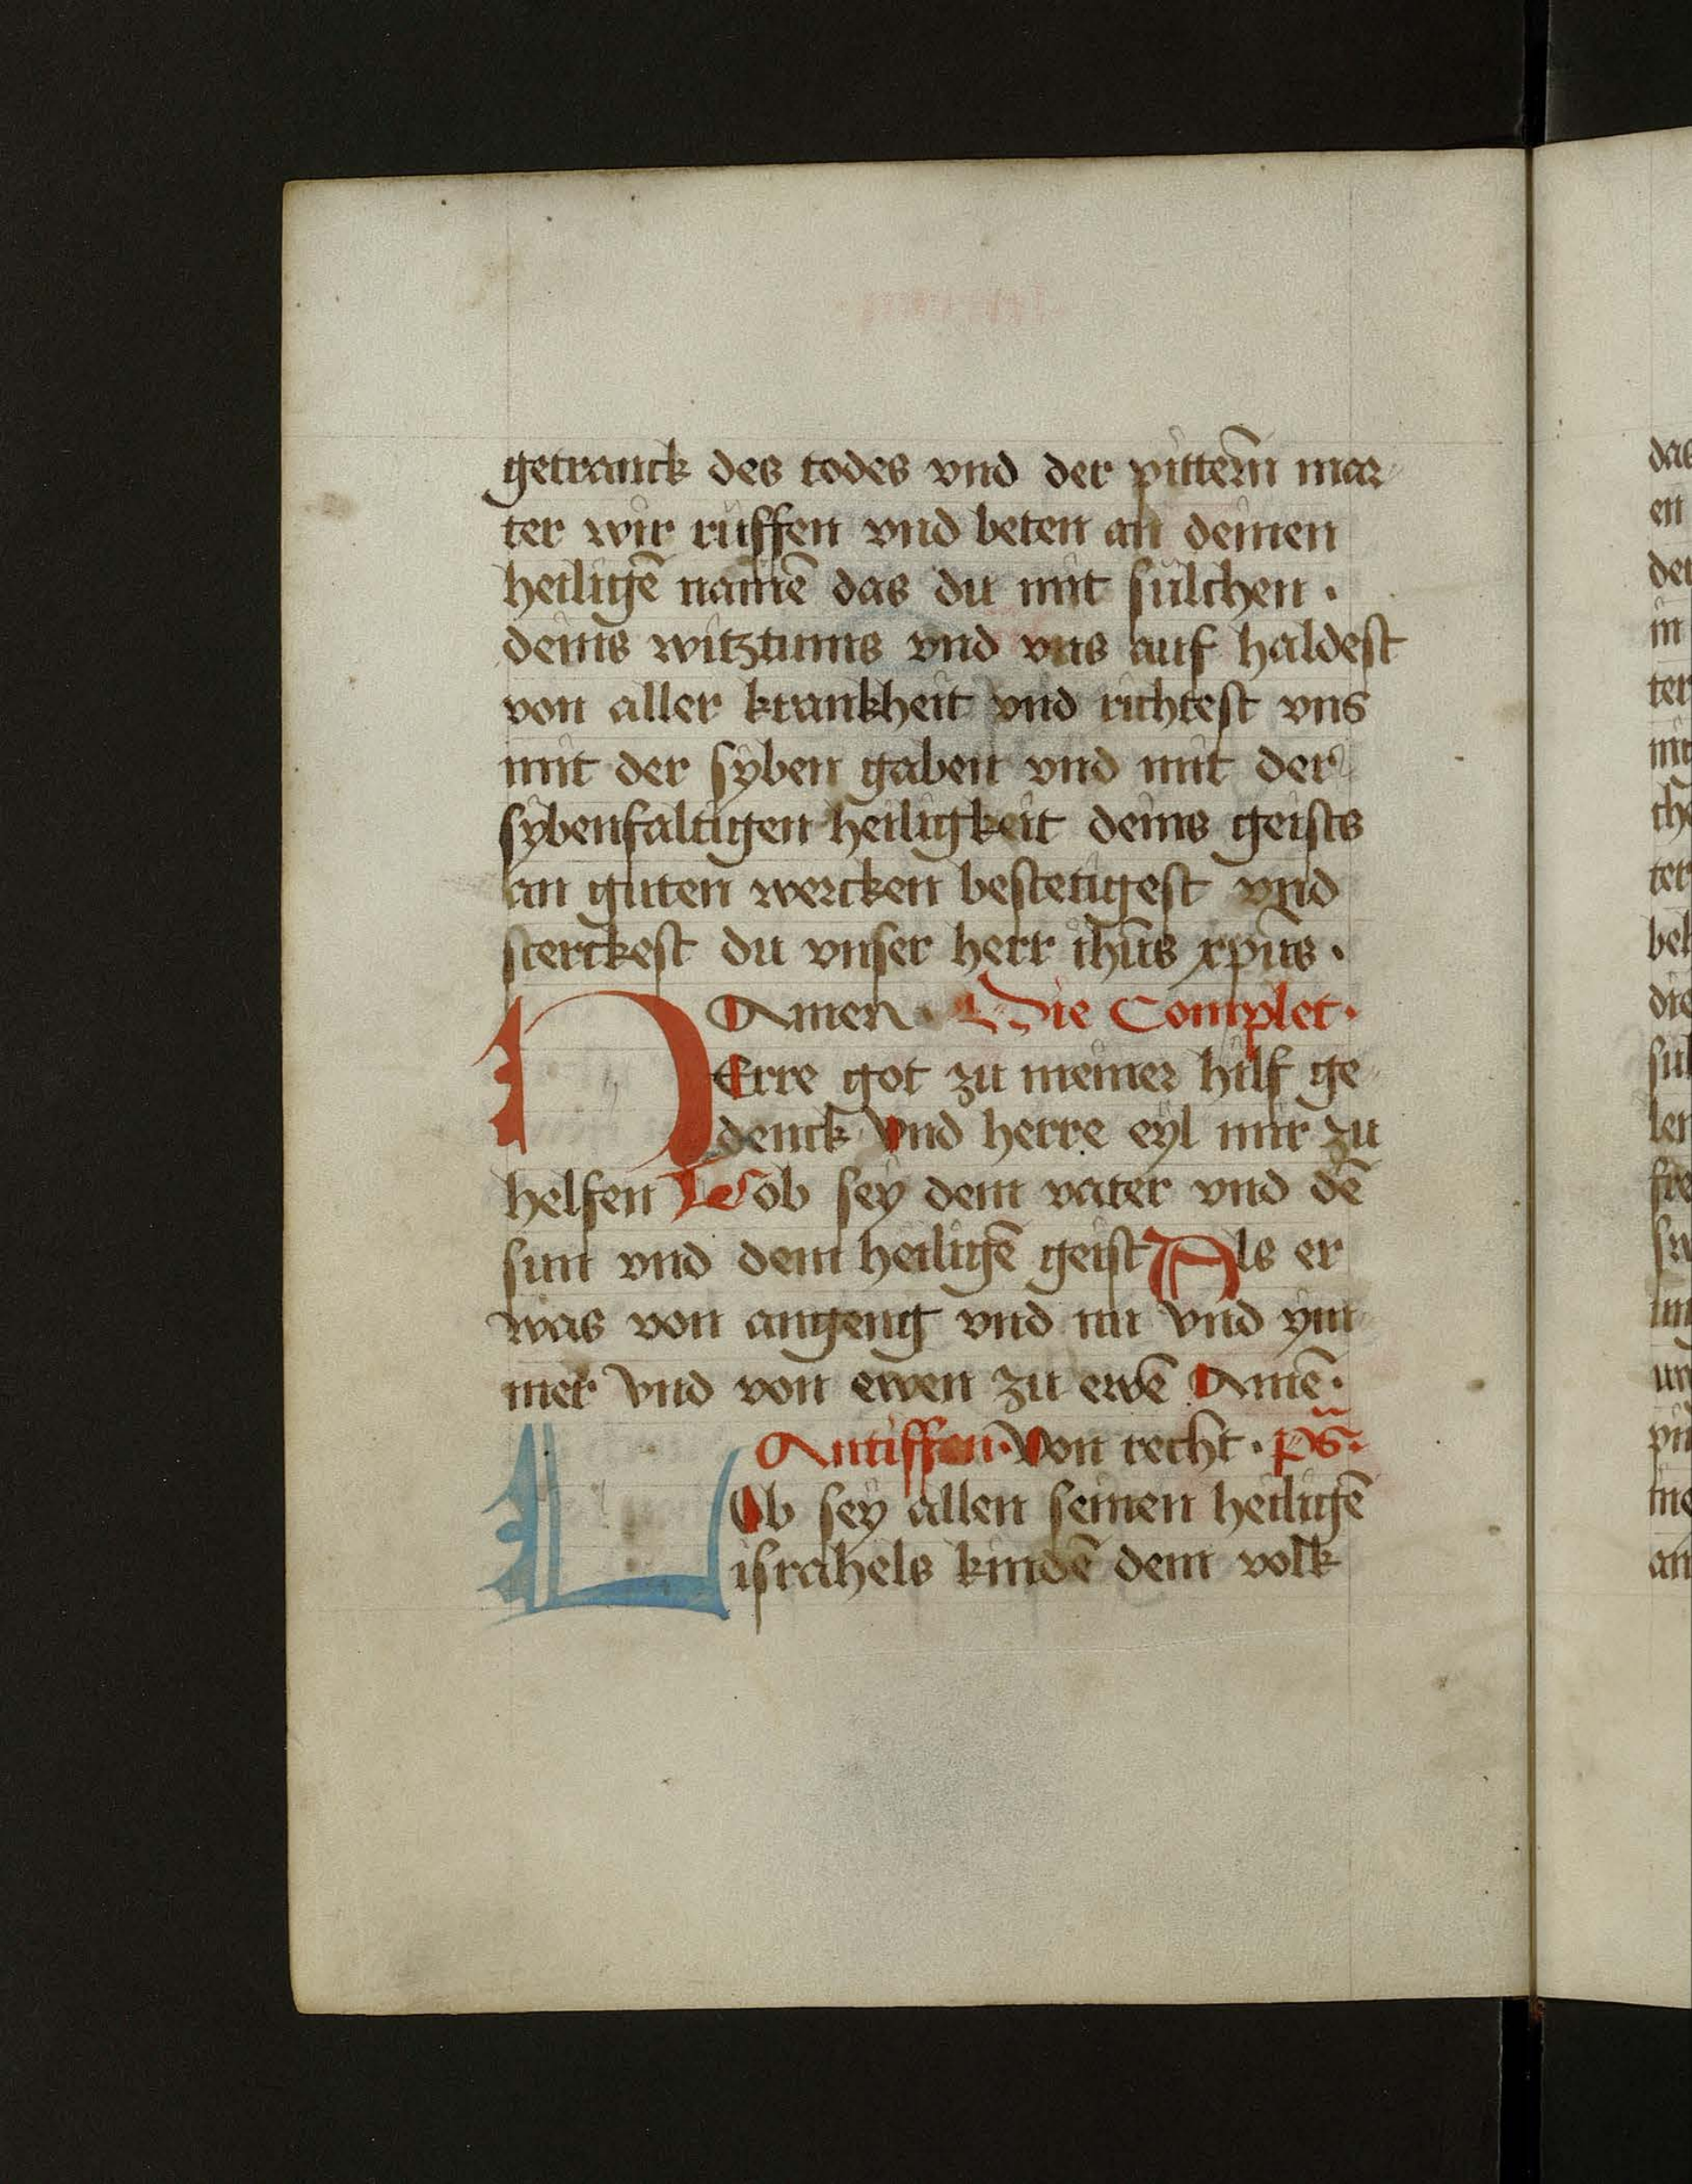 getranck des todes vnd der pitterñ mar
ter wir rüffen vnd beten an deinen
heiligē namē das du mit sülchen ·
deins witztums vnd vns auf haldest
von aller krankheit vnd richtest vns
mit der syben gaben vnd mit der
sybenfaltigen heiligkeit deins geists
an guten wercken bestetigest vnd
sterckest du vnser herr ihūs xpūs ·
Amen · Die Complet ·
HErre got zu meiner hilf ge
denck vnd herre eyl mir zu
helfen Lob sey dem vater vnd dē
sun vnd dem heiligē geist Als er
was von angeng vnd nu vnd ym
mer vnd von ewen zu ewē Amē ·
Antiffen · Von recht · p̃s ·
LOb sey allen seinen heiligē
israhels kindē dem volk